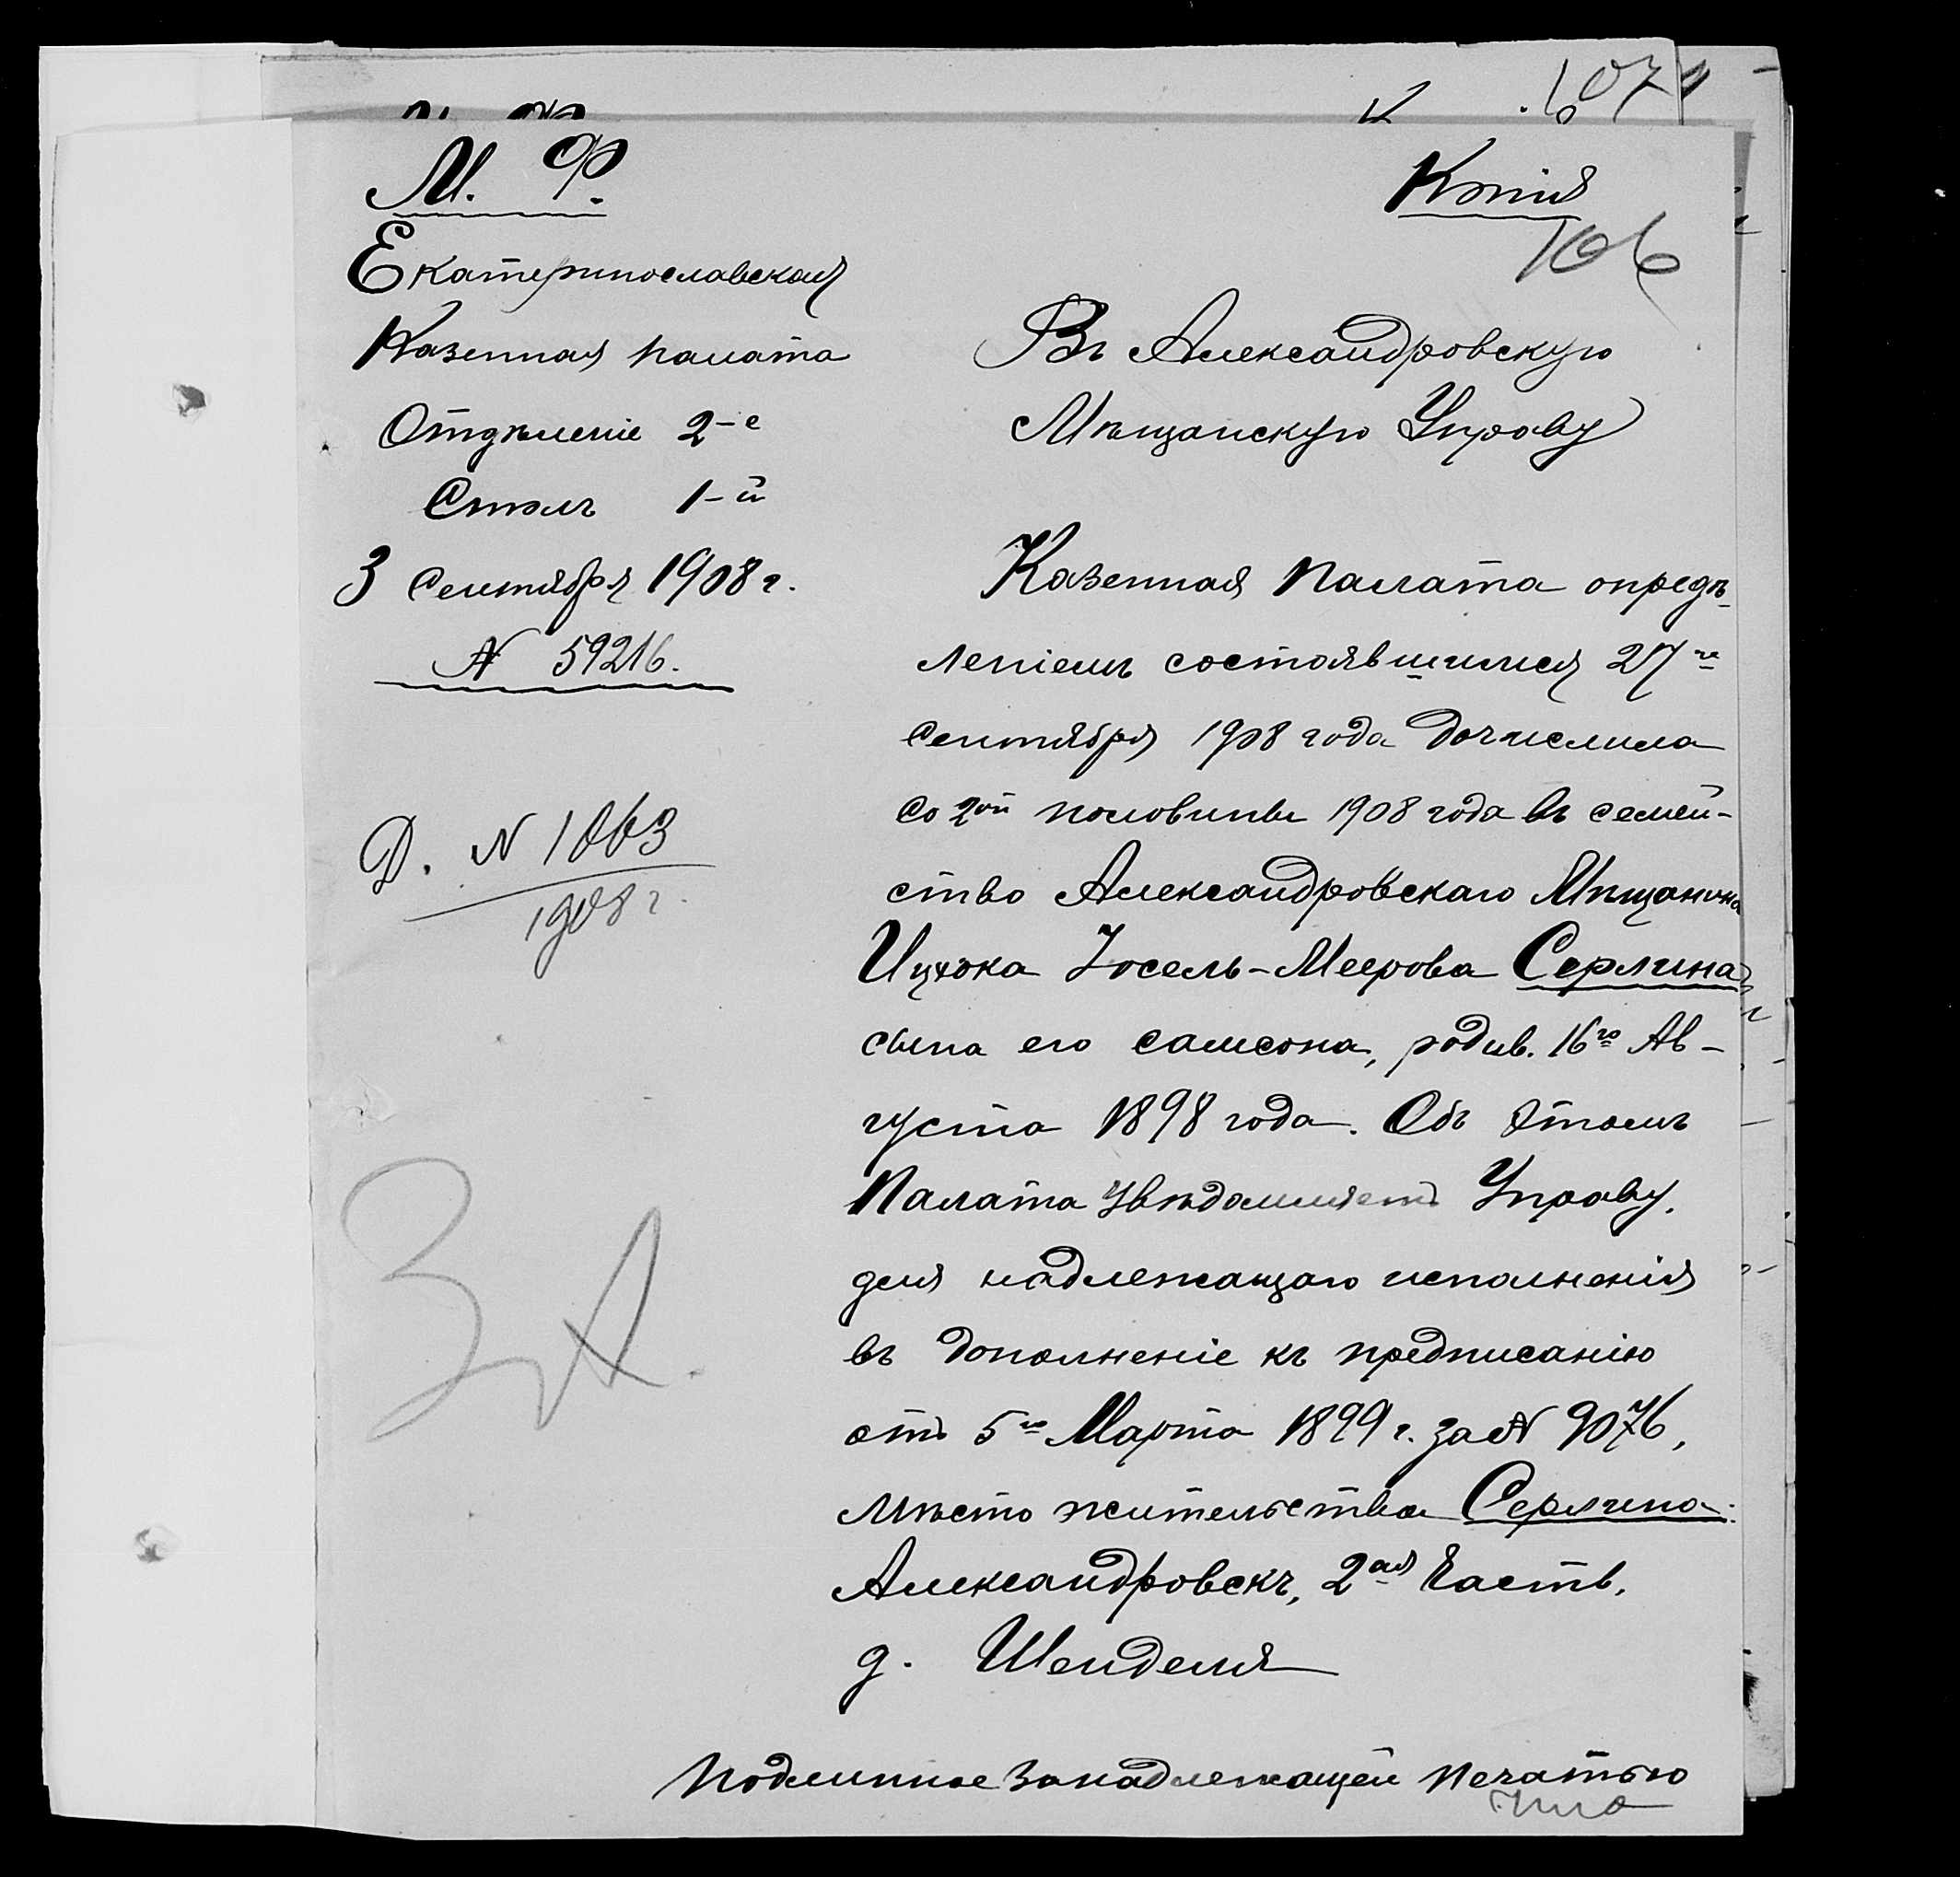 1071
М. Ф.
Копія
106
Екатеринославская
Казенная палата
Отдѣленіе 2-е
Столъ 1-й
3 Сентября 1908 г.
№ 59216.
Д. № 1063
1908 г.
ЗА.
Въ Александровскую
Мѣщанскую Управу
Казенная Палата опредѣ-
леніемъ состоявшимся 27го
Сентября 1908 года дочислила
со 2ой половины 1908 года въ семей-
ство Александровскаго Мѣщанина
Ицхока Іосель-Меерова Серлина
сына его Самсона, родив. 16го Ав-
густа 1898 года. Объ этомъ
Палата увѣдомляетъ Управу,
для надлежащаго исполненія
въ дополненіе къ предписанію
отъ 5го Марта 1899 г. за № 9076,
Мѣсто жительства Серлина:
Александровскъ, 2ая Часть,
д. Шенделя
Подлинное за надлежащей печатью